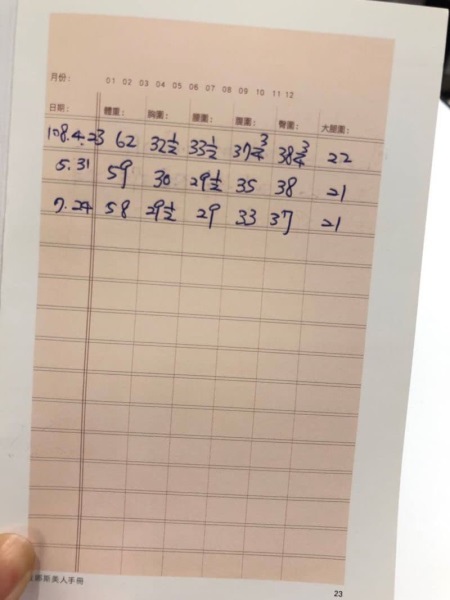 月份: 01 02 03 04 05 06 07 08 09 10 11 12
日期: 體重: 胸圍: 腰圍: 腹圍: 臀圍: 大腿圍:
108.4.23 62 32½ 33½ 37¾ 38¾ 22
5.31 59 30 29½ 35 38 21
7.24 58 29½ 29 33 37 21
斯美人手冊
23